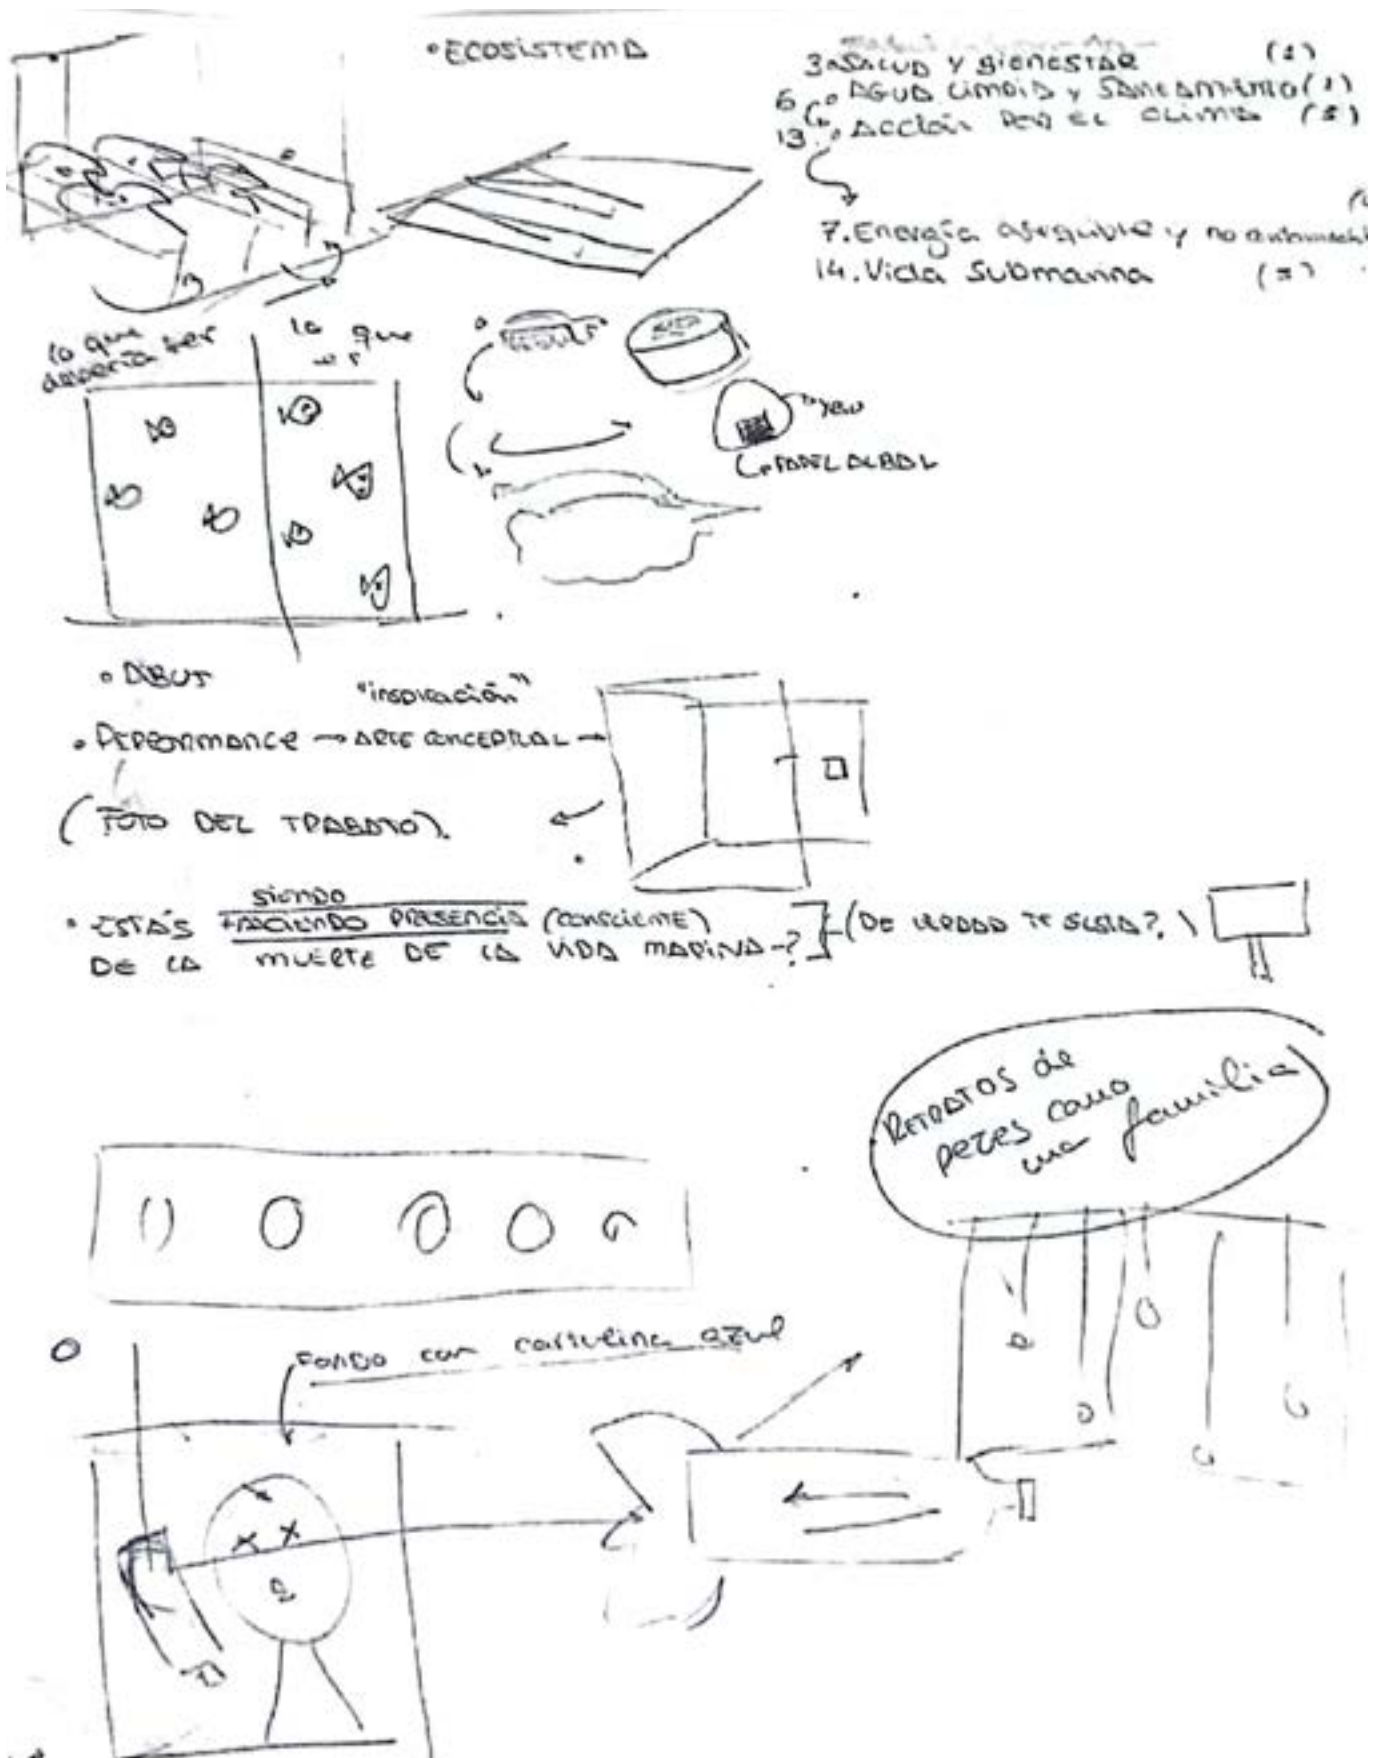 • ECOSISTEMA
3 • SALUD Y BIENESTAR (1)
6 • AGUA LIMPIA Y SANEAMIENTO (1)
13 • ACCIÓN POR EL CLIMA (5)
7. Energía asequible y no
14. Vida Submarina
lo que debería ser
lo que es
yeso
PAPEL ALBAL
"inspiración"
• PERFORMANCE → ARTE CONCEPTUAL →
(FOTO DEL TRABAJO).
siendo
• ESTÁS HACIENDO PRESENCIA (CONSCIENTE)
DE LA MUERTE DE LA VIDA MARINA?
(DE VERDAD TE GUSTA?)
RETRATOS de
peces como
una familia
FONDO con cartulina azul